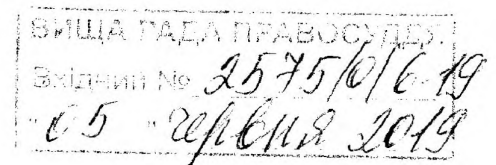 ВИЩА РАДА ПРАВОСУДДЯ
Вхідний № 2575/0/6-19
"05" червня 2019